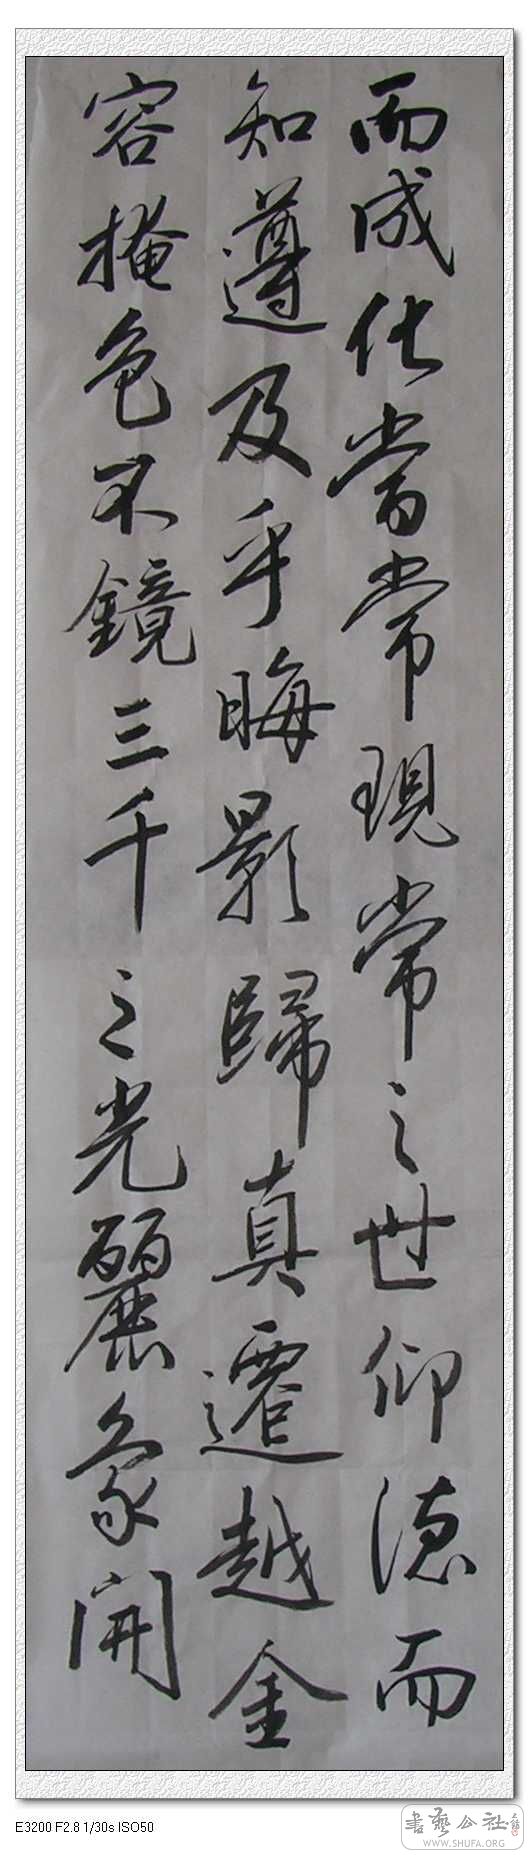 而成化当常現常之世仰徳而
知遵及乎晦影歸真遷越金
容掩色不鏡三千之光麗象開
E3200 F2.8 1/30s ISO50
書藝公社
WWW.SHUFA.ORG